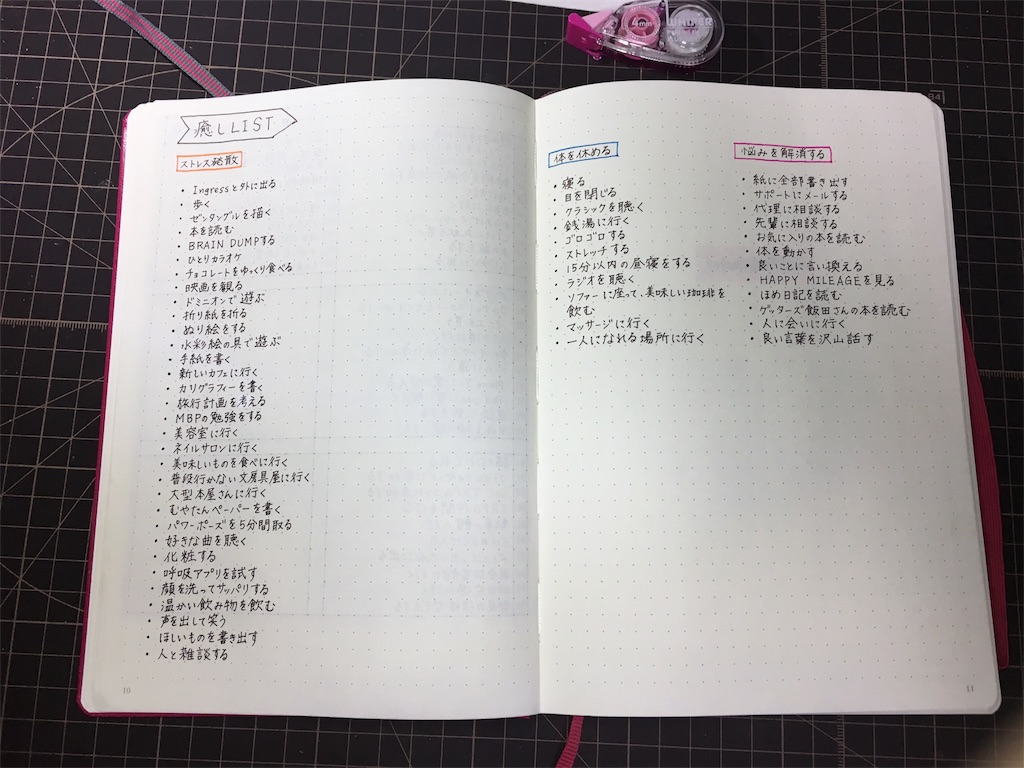 癒しLIST
ストレス発散
・Ingressと外に出る
・歩く
・ゼンタングルを描く
・本を読む
・BRAIN DUMPする
・ひとりカラオケ
・チョコレートをゆっくり食べる
・映画を観る
・ドミニオンで遊ぶ
・折り紙を折る
・ぬり絵をする
・水彩絵の具で遊ぶ
・手紙を書く
・新しいカフェに行く
・カリグラフィーを書く
・旅行計画を考える
・MBPの勉強をする
・美容室に行く
・ネイルサロンに行く
・美味しいものを食べに行く
・普段行かない文房具屋に行く
・大型本屋さんに行く
・むやたんペーパーを書く
・パワーポーズを5分間取る
・好きな曲を聴く
・化粧する
・呼吸アプリを試す
・顔を洗ってサッパリする
・温かい飲み物を飲む
・声を出して笑う
・ほしいものを書き出す
・人と雑談する
10
体を休める
・寝る
・目を閉じる
・クラシックを聴く
・銭湯に行く
・ゴロゴロする
・ストレッチする
・15分以内の昼寝をする
・ラジオを聴く
・ソファーに座って、美味しい珈琲を
飲む
・マッサージに行く
・一人になれる場所に行く
悩みを解消する
・紙に全部書き出す
・サポートにメールする
・代理に相談する
・先輩に相談する
・お気に入りの本を読む
・体を動かす
・良いことに言い換える
・HAPPY MILEAGEを見る
・ほめ日記を読む
・ゲッターズ飯田さんの本を読む
・人に会いに行く
・良い言葉を沢山話す
11
4mm
WHIPER